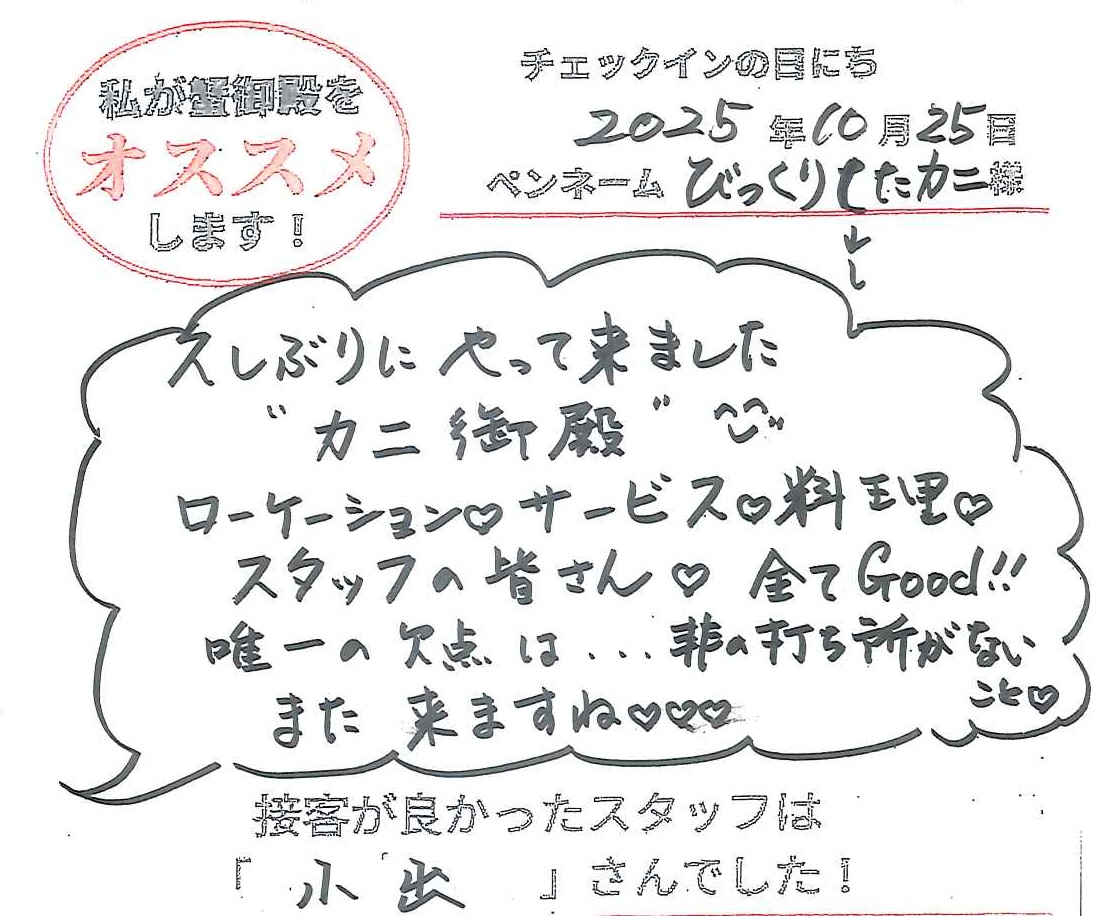 私が蟹御殿を
オススメ
します!
チェックインの日にち
2025年10月25日
ペンネーム びっくりしたカニ様
し
久しぶりに やって来ました
"カニ御殿"
ローケーション♡サービス♡料理♡
スタッフの皆さん♡ 全てGood!!
唯一の欠点は...非の打ち所がない
こと♡
また来ますね♡♡♡
接客が良かったスタッフは
「小出」さんでした!